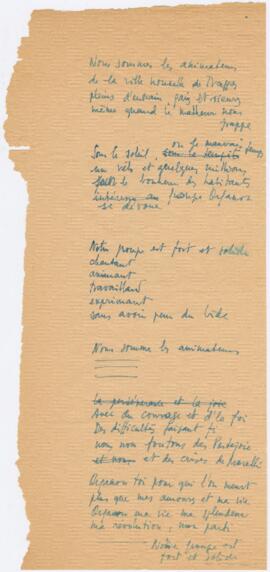 Nous sommes les animateurs
de la ville nouvelle de Trappes
pleins d'entrain gais et rieurs
même quand le malheur nous
frappe
ou le mauvais temps
Sous le soleil, sous la tempête
un vélo et quelques
le bonheur des habitants
groupe Organon
se dévoue
Notre groupe est fort et solide
chantant
animant
travaillant
exprimant
sans avoir peur du vide
Nous somme les animateurs
La persévérance et la joie
Avec du courage et d'la foi
Des difficultés faisant fi
nous nous foutons des
et nous et des crises de
Organon toi pour qui l'on meurt
plus que mes amours et ma vie
Organon ma vie ma splendeur
ma révolution, mon parti
Notre groupe est
fort et solide